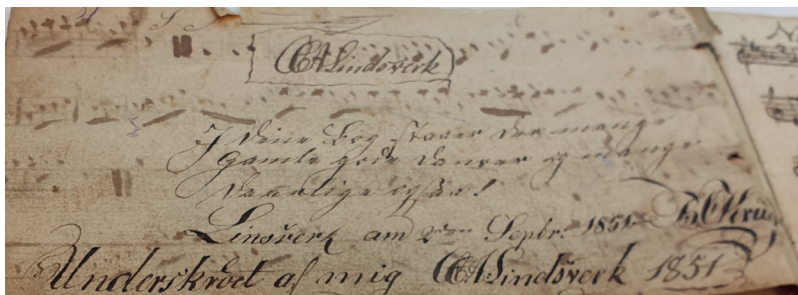 CA Lindsverk
I denne Bog staaer der mange
gamle gode Dandser og mange
daarlige ogsaa!
Linsverk am 2den Septbr. 1851.
Underskrevet af mig CA Lindsverk 1851